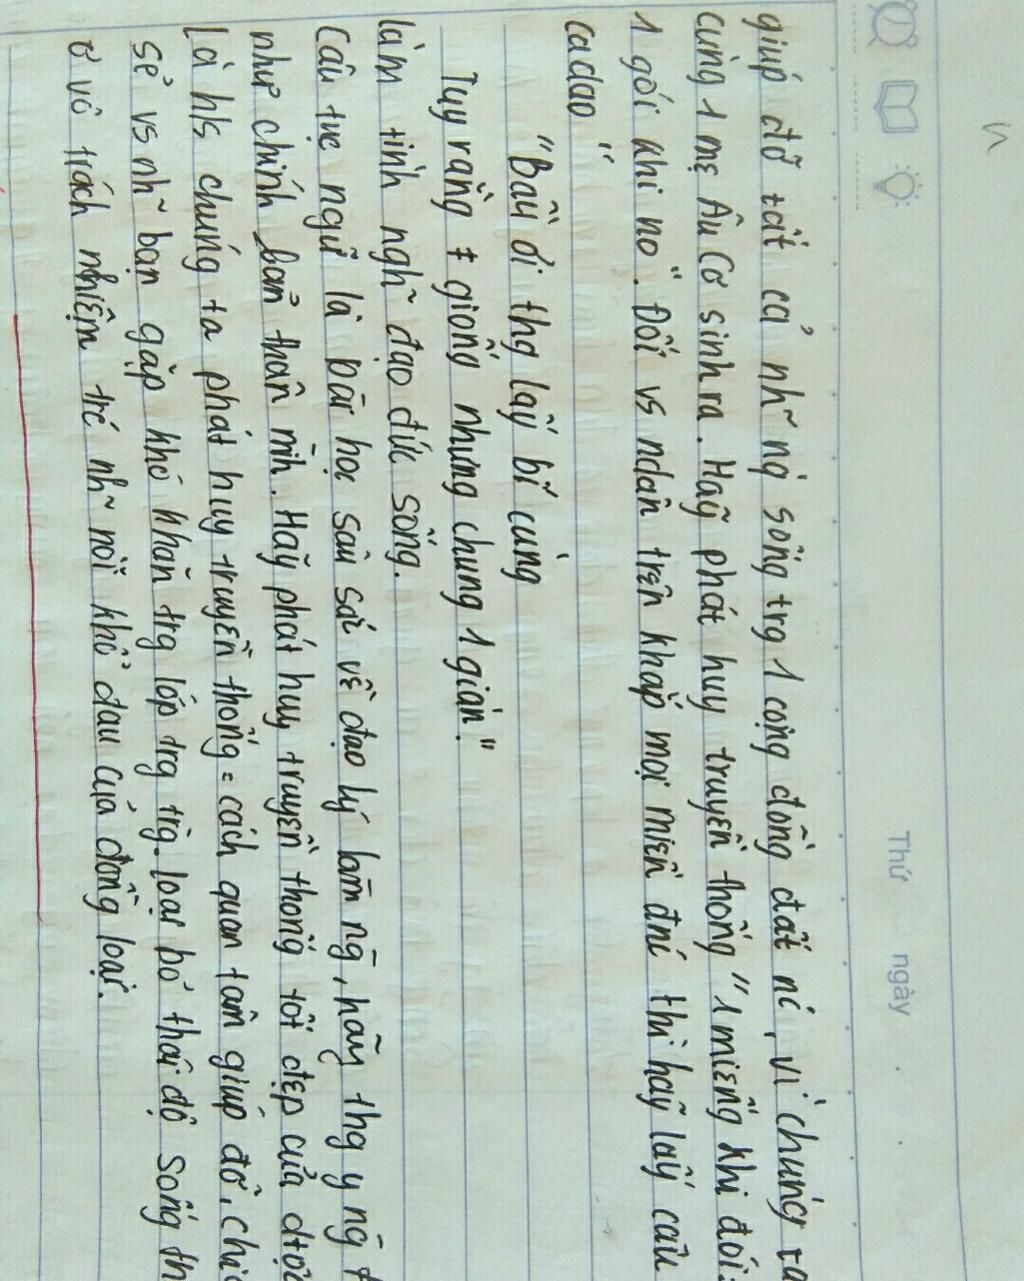 Thứ ngày
giúp đỡ tất cả nh~ ng` sống trg 1 cộng đồng đất nc, vì chúng ta
cùng 1 mẹ Âu Cơ sinh ra. Hãy phát huy truyền thống "1 miếng khi đói
1 gói khi no". Đối vs ndân trên khắp mọi miền đnc thì hãy lấy câu
ca dao "
"Bầu ơi thg lấy bí cùng
Tuy rằng ≠ giống nhưng chung 1 giàn."
làm tình nghĩ đạo đức sống.
Câu tục ngữ là bài học sâu sắc về đạo lý làm ng, hãy thg y ng
như chính bản thân mình. Hãy phát huy truyền thống tốt đẹp của
Là h/s chúng ta phát huy truyền thống = cách quan tâm giúp đỡ, chi
sẻ vs nh~ bạn gặp khó khăn trg lớp trg trg. loại bỏ thái độ sống th
ơ vô trách nhiệm trc nh~ nỗi khổ đau của đồng loại.